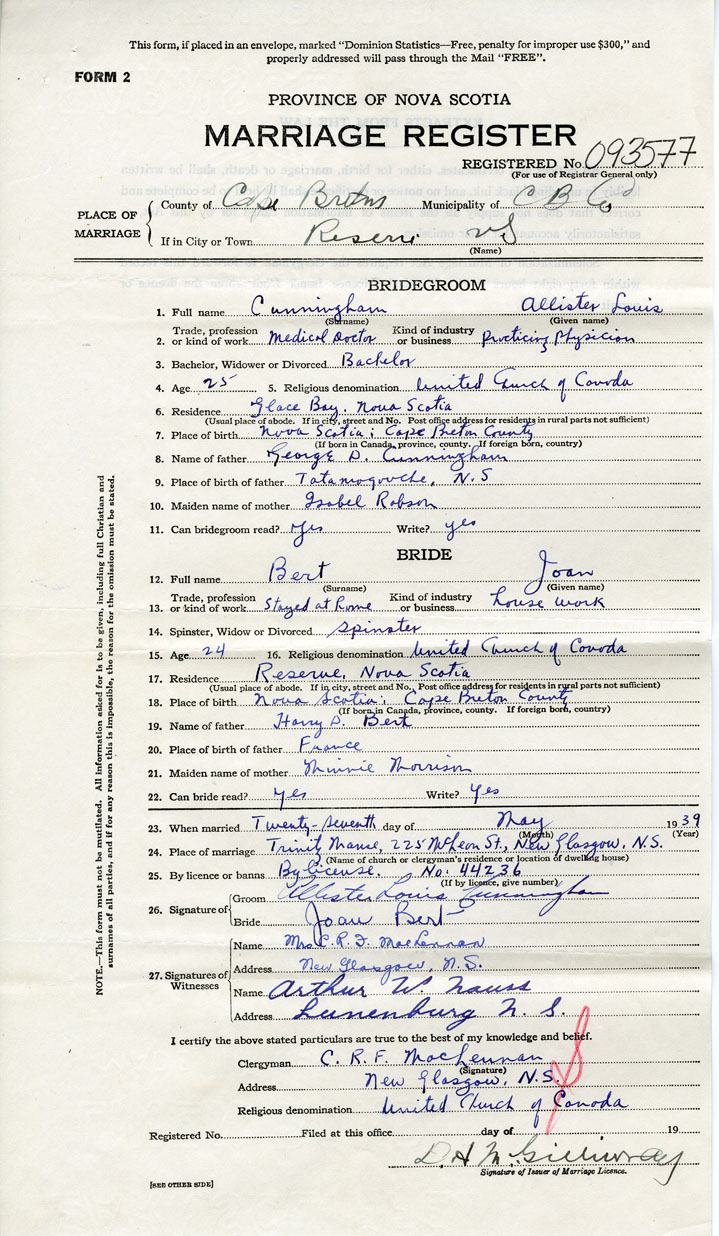 This form, if placed in an envelope, marked "Dominion Statistics—Free, penalty for improper use $300," and
properly addressed will pass through the Mail "FREE".
FORM 2
PROVINCE OF NOVA SCOTIA
MARRIAGE REGISTER
REGISTERED No. 093577
(For use of Registrar General only)
PLACE OF MARRIAGE
County of Cape Breton Municipality of C B Co
If in City or Town Reserve NS
(Name)
BRIDEGROOM
1. Full name Cunningham Allister Louis
(Surname) (Given name)
2. Trade, profession or kind of work Medical Doctor Kind of industry or business Practicing Physician
3. Bachelor, Widower or Divorced Bachelor
4. Age 25 5. Religious denomination United Church of Canada
6. Residence Glace Bay, Nova Scotia
(Usual place of abode. If in city, street and No. Post office address for residents in rural parts not sufficient)
7. Place of birth Nova Scotia; Cape Breton County
(If born in Canada, province, county. If foreign born, country)
8. Name of father George D. Cunningham
9. Place of birth of father Tatamagouche, N.S
10. Maiden name of mother Isabel Robson
11. Can bridegroom read? Yes Write? yes
BRIDE
12. Full name Bert Joan
(Surname) (Given name)
13. Trade, profession or kind of work Stayed at Home Kind of industry or business house work
14. Spinster, Widow or Divorced Spinster
15. Age 24 16. Religious denomination United Church of Canada
17. Residence Reserve, Nova Scotia
(Usual place of abode. If in city, street and No. Post office address for residents in rural parts not sufficient)
18. Place of birth Nova Scotia; Cape Breton County
(If born in Canada, province, county. If foreign born, country)
19. Name of father Harry D. Bert
20. Place of birth of father France
21. Maiden name of mother Minnie Morrison
22. Can bride read? yes Write? Yes
23. When married Twenty-seventh day of May 1939
(Month) (Year)
24. Place of marriage Trinity Manse, 225 McLeon St., New Glasgow, N.S.
(Name of church or clergyman's residence or location of dwelling house)
25. By licence or banns By license, No. 44236
(If by licence, give number)
26. Signature of
Groom Allister Louis Cunningham
Bride Joan Bert
27. Signatures of Witnesses
Name Mrs. C. R. F. MacLennan
Address New Glasgow, N.S.
Name Arthur W. Nauss
Address Lunenburg N. S.
I certify the above stated particulars are true to the best of my knowledge and belief.
Clergyman C. R. F. MacLennan
(Signature)
Address New Glasgow, N.S.
Religious denomination United Church of Canada
Registered No. Filed at this office day of 19
D. H McGillivray
Signature of Issuer of Marriage Licence.
[SEE OTHER SIDE]
NOTE.—This form must not be mutilated. All information asked for is to be given, including full Christian and
surnames of all parties, and if for any reason this is impossible, the reason for the omission must be stated.